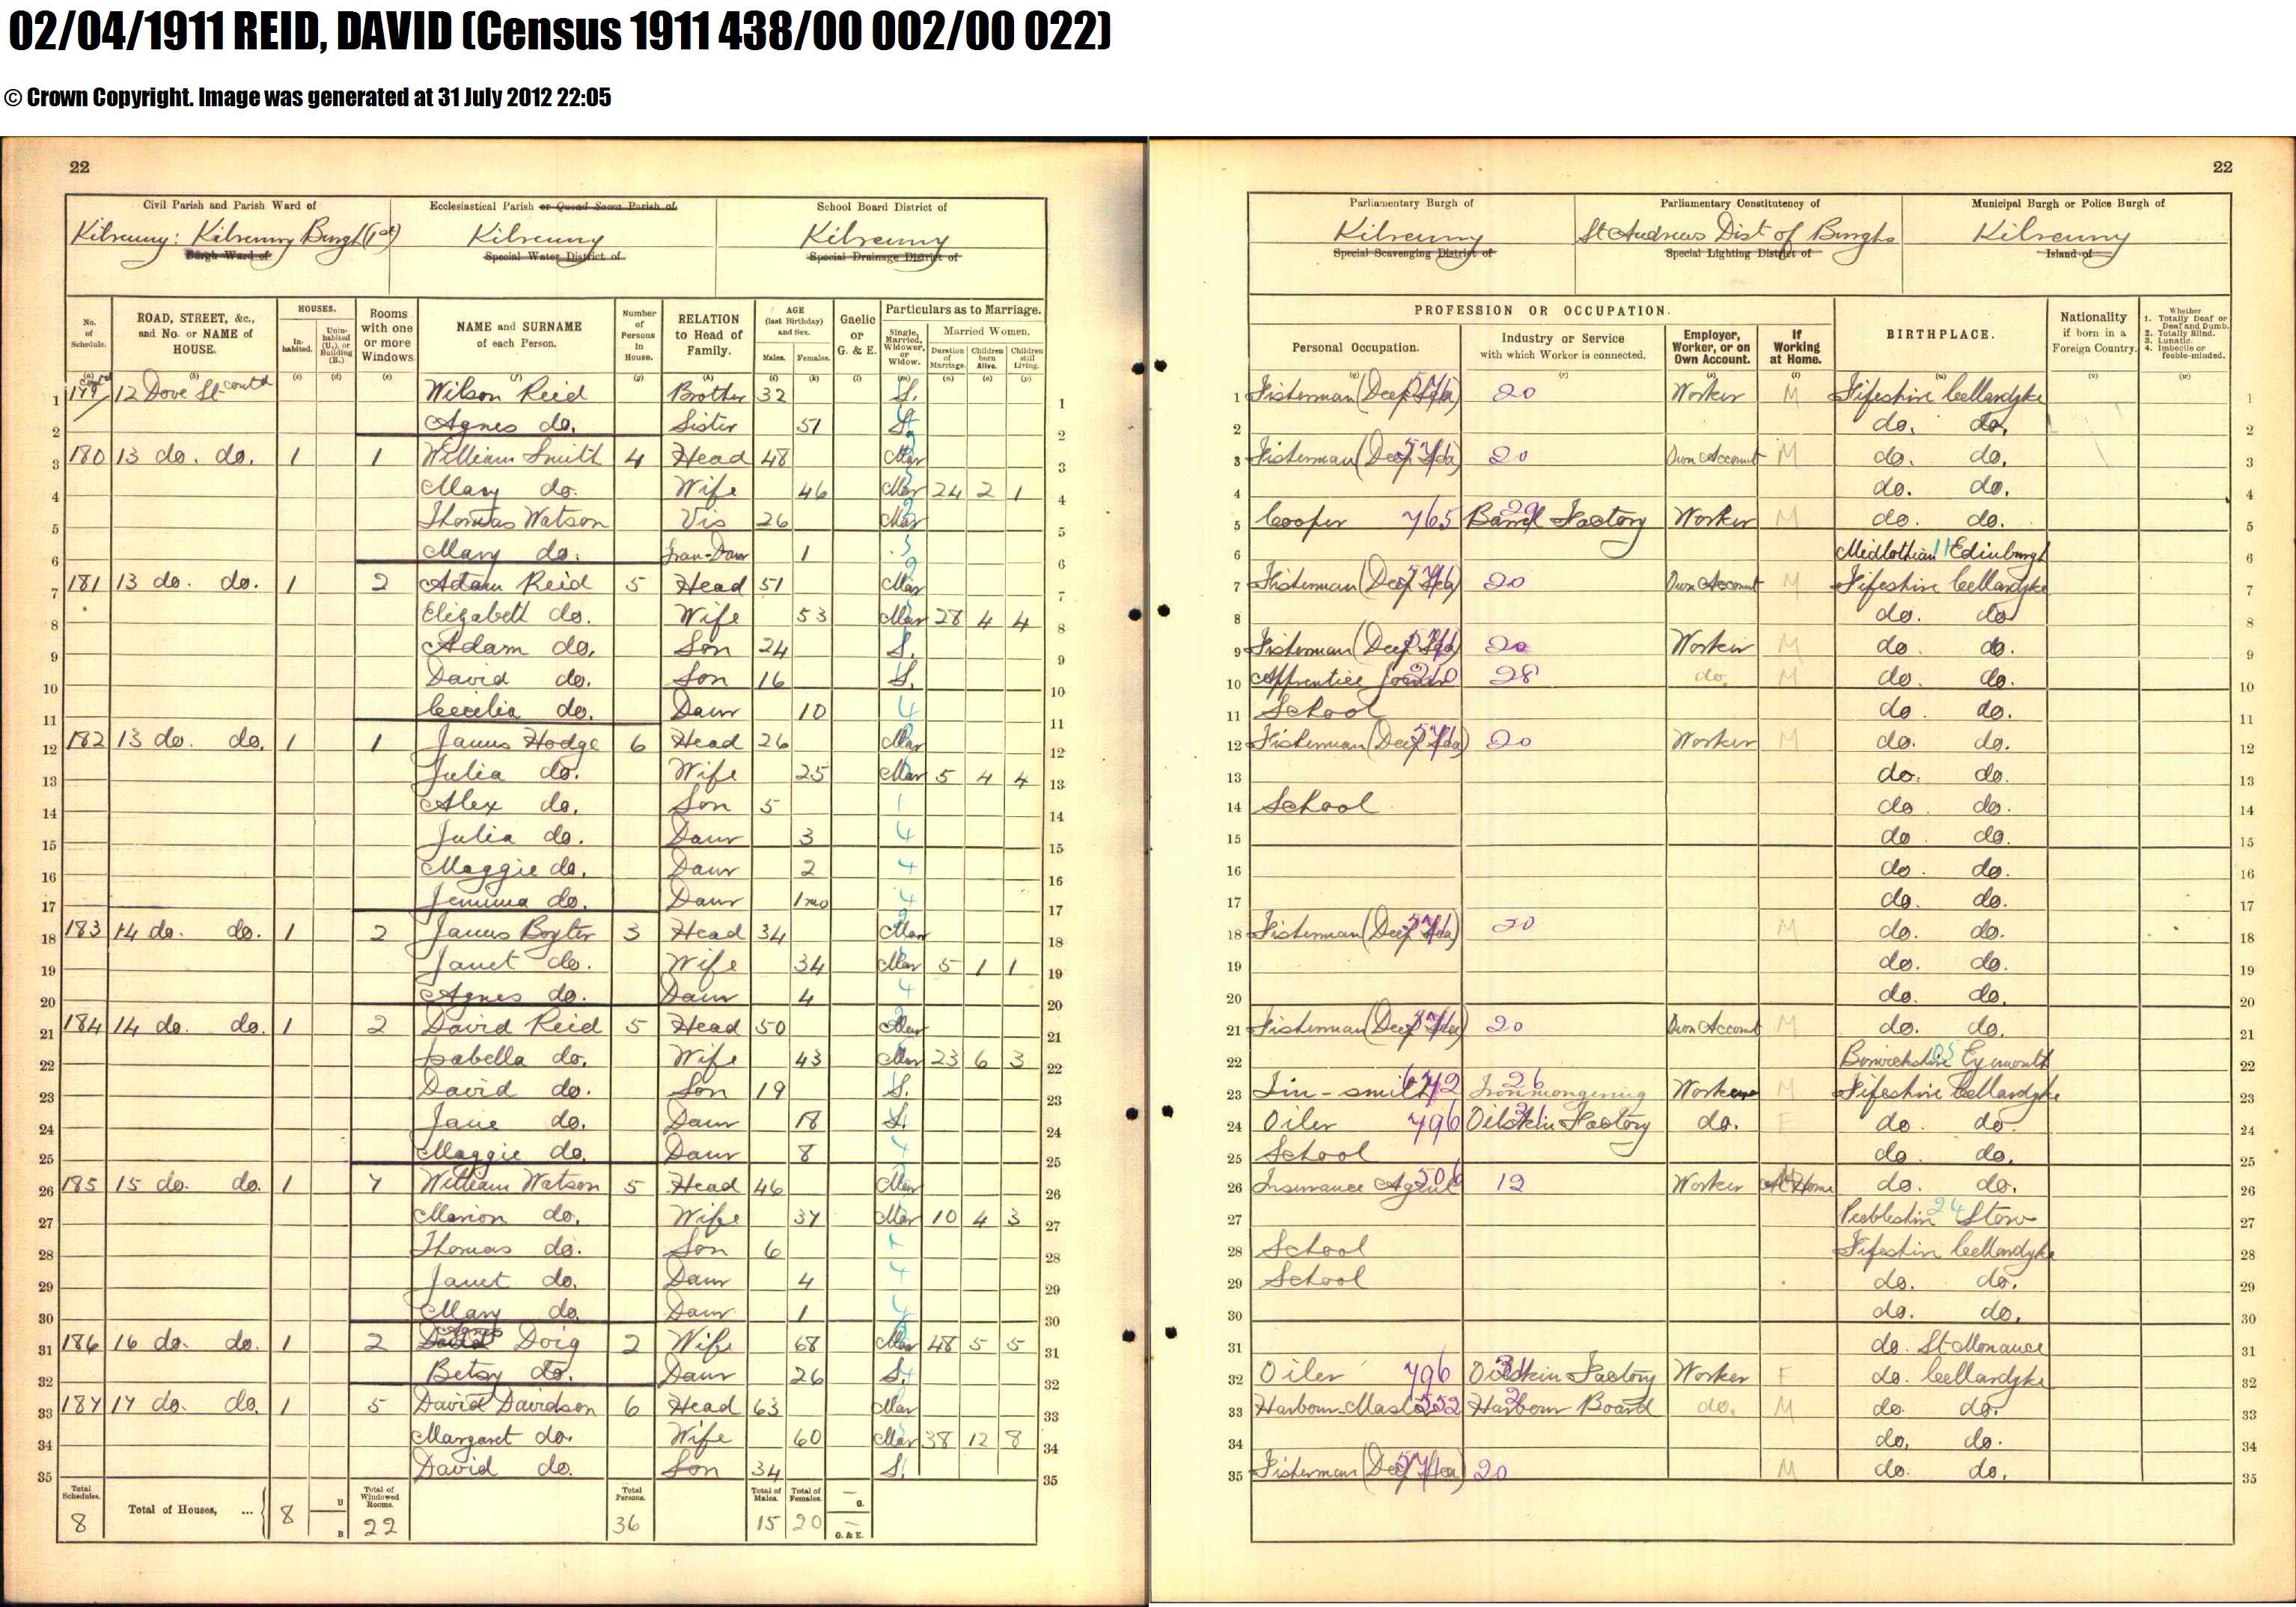 02/04/1911 REID, DAVID (Census 1911 438/00 002/00 022)
© Crown Copyright. Image was generated at 31 July 2012 22:05
22 22
Civil Parish and Parish Ward of Ecclesiastical Parish or Quoad Sacra Parish of School Board District of Parliamentary Burgh of Parliamentary Constituency of Municipal Burgh or Police Burgh of
Kilrenny: Kilrenny Burgh (Pat) Kilrenny Kilrenny Kilrenny St Andrews Dist of Burghs Kilrenny
Burgh Ward of Special Water District of Special Drainage District of Special Scavenging District of Special Lighting District of Island of
No. of Schedule. ROAD, STREET, &c., and No. or NAME of HOUSE. HOUSES. Inhabited. Uninhabited (U.), or Building (B.) Rooms with one or more Windows NAME and SURNAME of each Person. Number of Persons in House. RELATION to Head of Family. AGE (last Birthday) and Sex. Males. Females. Gaelic or G. & E. Particulars as to Marriage. Single, Married, Widower, or Widow. Married Women. Duration of Marriage. Children born Alive. Children still Living. PROFESSION OR OCCUPATION. Personal Occupation. Industry or Service with which Worker is connected. Employer, Worker, or on Own Account. If Working at Home. BIRTHPLACE. Nationality if born in a Foreign Country. Whether 1. Totally Deaf or Deaf and Dumb. 2. Totally Blind. 3. Lunatic. 4. Imbecile or feeble-minded.
1 179 contd 12 Dove St contd Wilson Reid Brother 32 S. 1 Fisherman (Deep Sea) 20 Worker M Fifeshire Cellardyke 1
2 Agnes do. Sister 51 S. 2 do. do. 2
3 180 13 do. do. 1 1 William Smith 4 Head 48 Mar 3 Fisherman (Deep Sea) 20 Own Account M do. do. 3
4 Mary do. Wife 46 Mar 24 2 1 4 do. do. 4
5 Thomas Watson Vis 26 Mar 5 Cooper 765 Barrel Factory 29 Worker M do. do. 5
6 Mary do. Gran-Daur 1 6 Midlothian Edinburgh 6
7 181 13 do. do. 1 2 Adam Reid 5 Head 51 Mar 7 Fisherman (Deep Sea) 20 Own Account M Fifeshire Cellardyke 7
8 Elizabeth do. Wife 53 Mar 28 4 4 8 do. do 8
9 Adam do. Son 24 S. 9 Fisherman (Deep Sea) 20 Worker M do. do. 9
10 David do. Son 16 S. 10 Apprentice Joiner 28 do. M do. do. 10
11 Cecilia do. Daur 10 4 11 School do. do. 11
12 182 13 do. do. 1 1 James Hodge 6 Head 26 Mar 12 Fisherman (Deep Sea) 20 Worker M do. do. 12
13 Julia do. Wife 25 Mar 5 4 4 13 do. do. 13
14 Alex do. Son 5 1 14 School do. do. 14
15 Julia do. Daur 3 4 15 do. do. 15
16 Maggie do. Daur 2 4 16 do. do. 16
17 Jemima do. Daur 1mo 4 17 do. do. 17
18 183 14 do. do. 1 2 James Boyter 3 Head 34 Mar 18 Fisherman (Deep Sea) 20 M do. do. 18
19 Janet do. Wife 34 Mar 5 1 1 19 do. do. 19
20 Agnes do. Daur 4 4 20 do. do. 20
21 184 14 do. do. 1 2 David Reid 5 Head 50 Mar 21 Fisherman (Deep Sea) 20 Own Account M do. do. 21
22 Isabella do. Wife 43 Mar 23 6 3 22 Berwickshire Eyemouth 22
23 David do. Son 19 S. 23 Tin-smith 672 Ironmongering 26 Worker M Fifeshire Cellardyke 23
24 Jane do. Daur 18 S. 24 Oiler 796 Oilskin Factory do. F do. do. 24
25 Maggie do. Daur 8 4 25 School do. do. 25
26 185 15 do. do. 1 7 William Watson 5 Head 46 Mar 26 Insurance Agent 506 12 Worker At Home do. do. 26
27 Marion do. Wife 37 Mar 10 4 3 27 Peeblesshire 24 Stow 27
28 Thomas do. Son 6 1 28 School Fifeshire Cellardyke 28
29 Janet do. Daur 4 4 29 School do. do. 29
30 Mary do. Daur 1 4 30 do. do. 30
31 186 16 do. do. 1 2 David Agnes Doig 2 Wife 68 Mar 48 5 5 31 do. St Monance 31
32 Betsy do. Daur 26 S. 32 Oiler 796 Oilskin Factory Worker F do. Cellardyke 32
33 187 17 do. do. 1 5 David Davidson 6 Head 63 Mar 33 Harbour-Master 552 Harbour Board do. M do. do. 33
34 Margaret do. Wife 60 Mar 38 12 8 34 do. do. 34
35 David do. Son 34 S. 35 Fisherman (Deep Sea) 20 M do. do. 35
Total Schedules. 8 Total of Houses, ... 8 U B Total of Windowed Rooms. 22 Total Persons. 36 Total of Males. 15 Total of Females. 20 G. G. & E.